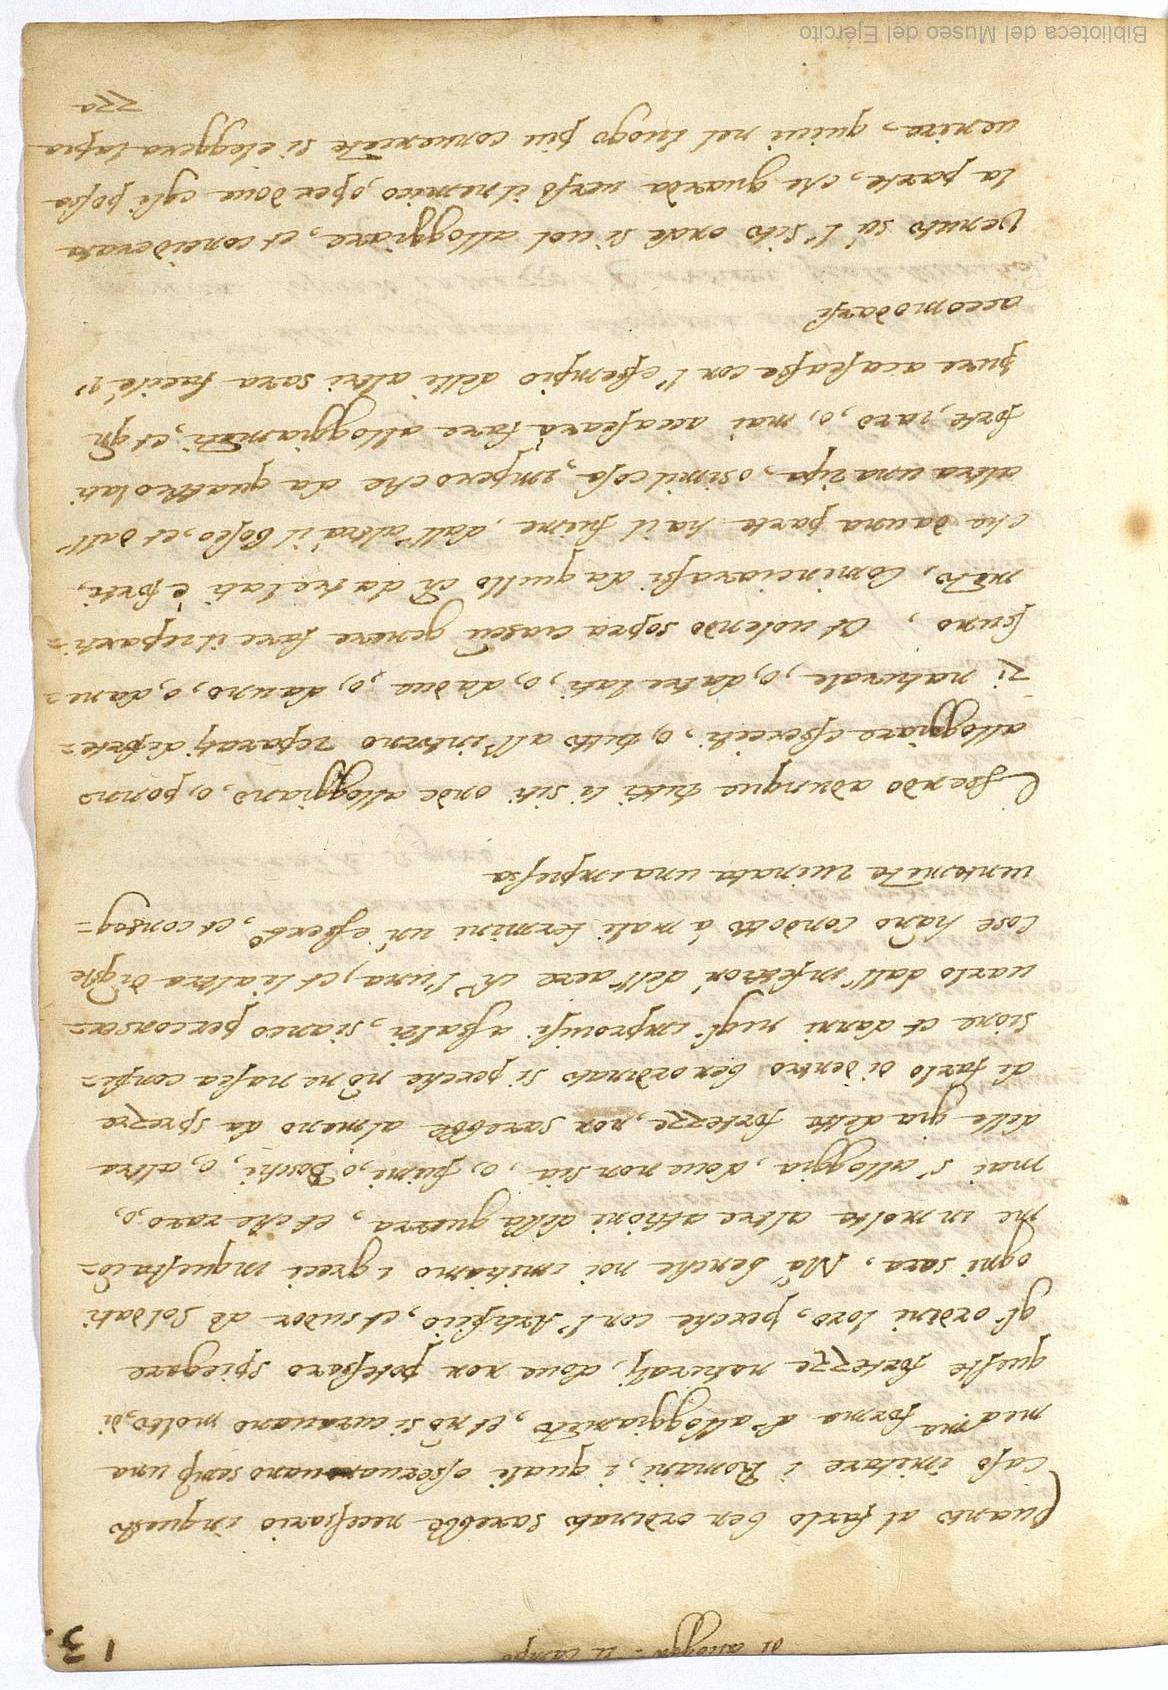 di allogg. il campo
13.
Quanto al farlo ben ordinato sarebbe necessario in questo
caso imitare i Romani, i quali osseruauano semp una
med.ma forma d'alloggiamẽto, et nõ si curauano molto, di
queste fortezze naturalj, doue non potessaro spiegare
gl'ordini loro, perche con l'Artificio, et sudor de Soldati
ogni sara, Mà benche noi imitiamo i greci in questa cõ=
me in molte altre attioni della guerra, et che raro, o,
mai s'alloggia, doue non sia, o, fiumi, ò Boschi, o, altra
delle gia dette fortezze, non sarebbe almeno da sprezze
di farlo di dentro ben ordinato si perche nõ ne nasca confu=
sione et danni negl'improuisi assalti, si anco per conser=
uarlo dall'infettion' dell'aere ch' l'una, et l'altra di q̃ste
Cose hãno condotto à mali termini un' esserc.o, et conseg=
uentemẽte ruinata una impresa
Essendo adunque tutti li siti onde alloggiano, o, ponno
alloggiare esserciti, o, tutto all'intorno reparatj di forte=
zi naturale, o, da tre lati, o, da due, o, da uno, o, da ne=
ssuno, Et uolendo sopra ciascũ genere fare il reparti=
mẽto, Cominciarassi da quello ch' da tre lati è forte,
che da una parte ha il fiume, dall'altra il bosco, et dall'
altra una ripa, o simil cosa, imperoche da quattro lati
forte, raro, o, mai accascarà fare alloggiamẽti, et qñ
pure accascassa con l'essempio delli altri sara facile l'
accomodarsi
Venuto sù l' Sito onde si uol alloggiare, et considerata
la parte, che guarda uerso il nemico, o per doue egli possa
uenire, quiui nel luogo piu conueniẽte si eleggera la pia
zza
Biblioteca del Museo del Ejército